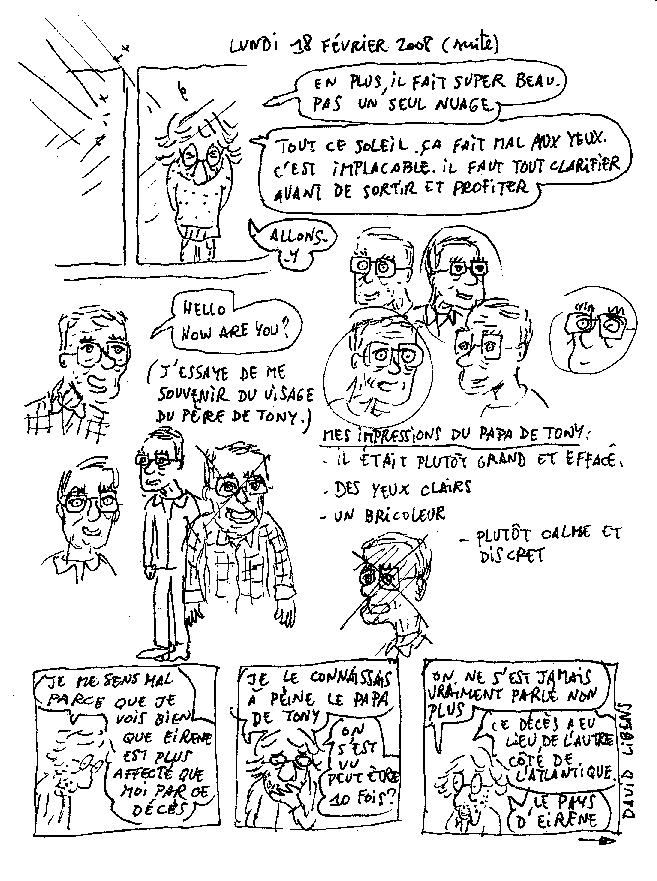 LUNDI 18 FÉVRIER 2008 (suite)
EN PLUS, IL FAIT SUPER BEAU.
PAS UN SEUL NUAGE
TOUT CE SOLEIL. ÇA FAIT MAL AUX YEUX.
C'EST IMPLACABLE. IL FAUT TOUT CLARIFIER
AVANT DE SORTIR ET PROFITER
ALLONS-
Y
HELLO
HOW ARE YOU?
(J'ESSAYE DE ME
SOUVENIR DU VISAGE
DU PÈRE DE TONY.)
MES IMPRESSIONS DU PAPA DE TONY:
- IL ÉTAIT PLUTÔT GRAND ET EFFACÉ.
- DES YEUX CLAIRS
- UN BRICOLEUR
- PLUTÔT CALME ET
DISCRET
JE ME SENS MAL
PARCE QUE JE
VOIS BIEN
QUE EIRENE
EST PLUS
AFFECTÉ QUE
MOI PAR CE
DÉCÈS
JE LE CONNAISSAIS
À PEINE LE PAPA
DE TONY
ON
S'EST
VU
PEUT ÊTRE
10 FOIS?
ON NE S'EST JAMAIS
VRAIMENT PARLÉ NON
PLUS
LE DÉCÈS A EU
LIEU DE L'AUTRE
CÔTÉ DE
L'ATLANTIQUE
LE PAYS
D'EIRENE
DAVID LIBENS